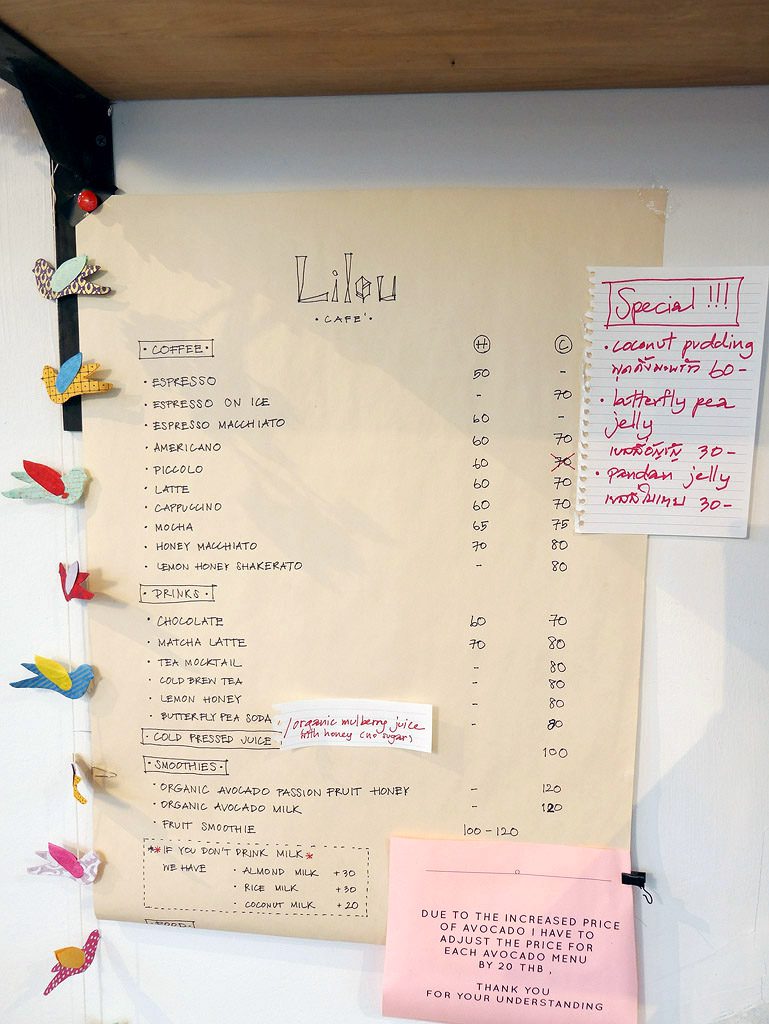 Lilou
·CAFE'·
·COFFEE· H C
· ESPRESSO 50 -
· ESPRESSO ON ICE - 70
· ESPRESSO MACCHIATO 60 -
· AMERICANO 60 70
· PICCOLO 60 70
· LATTE 60 70
· CAPPUCCINO 60 70
· MOCHA 65 75
· HONEY MACCHIATO 70 80
· LEMON HONEY SHAKERATO - 80
·DRINKS·
· CHOCOLATE 60 70
· MATCHA LATTE 70 80
· TEA MOCKTAIL - 80
· COLD BREW TEA - 80
· LEMON HONEY - 80
· BUTTERFLY PEA SODA - 80
· COLD PRESSED JUICE · 100
/organic mulberry juice
with honey (no sugar)
·SMOOTHIES·
· ORGANIC AVOCADO PASSION FRUIT HONEY - 120
· ORGANIC AVOCADO MILK - 120
· FRUIT SMOOTHIE 100 - 120
** IF YOU DON'T DRINK MILK*
WE HAVE · ALMOND MILK +30
· RICE MILK +30
· COCONUT MILK +20
·FOOD·
Special !!!
· coconut pudding
พุดดิ้งมะพร้าว 60-
· butterfly pea
jelly
เยลลี่อัญชัน 30-
· pandan jelly
เยลลี่ใบเตย 30-
DUE TO THE INCREASED PRICE
OF AVOCADO I HAVE TO
ADJUST THE PRICE FOR
EACH AVOCADO MENU
BY 20 THB ,
THANK YOU
FOR YOUR UNDERSTANDING